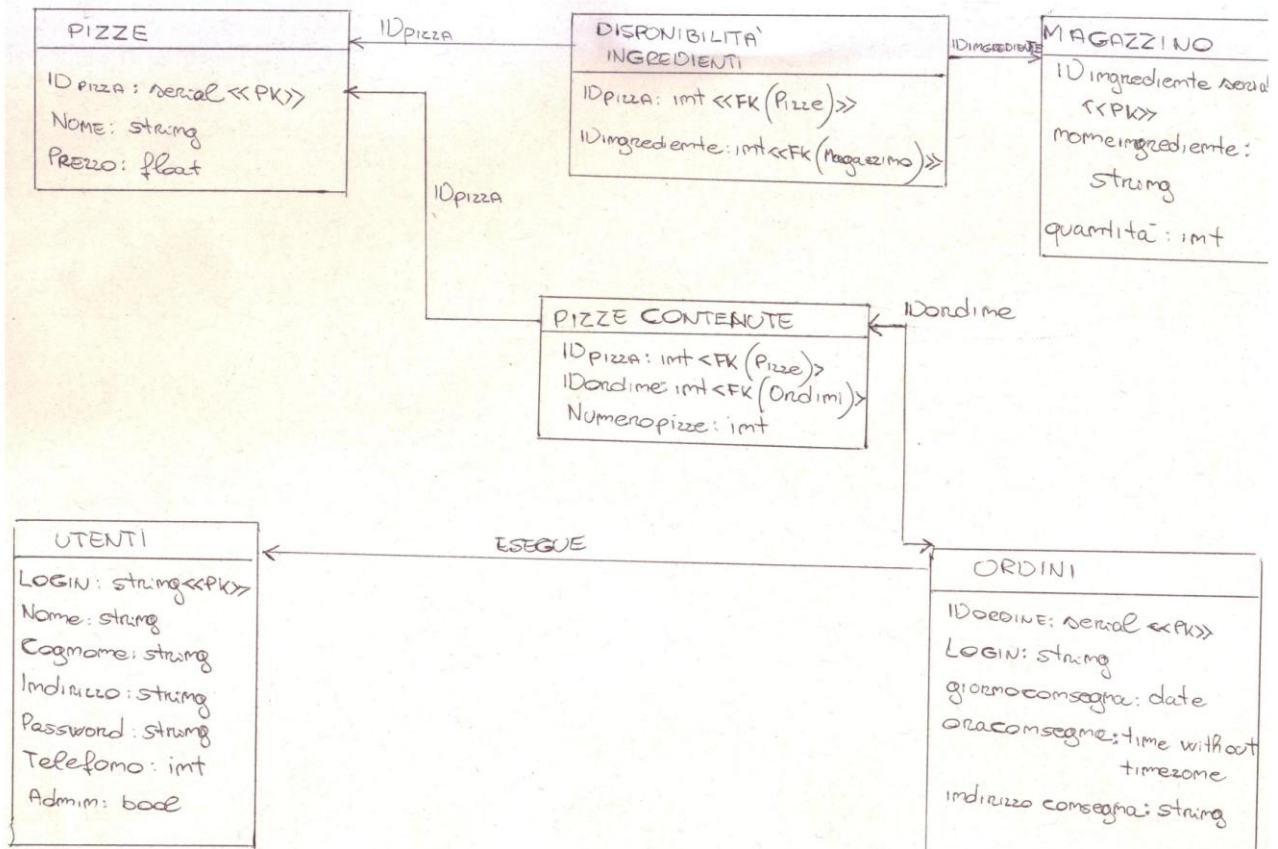 PIZZE
IDPIZZA: serial <<PK>>
NOME: string
PREZZO: float
IDPIZZA
DISPONIBILITA'
INGREDIENTI
IDPIZZA: int <<FK(Pizze)>>
IDingrediente: int<<FK(Magazzino)>>
IDINGREDIENTE
MAGAZZINO
IDingrediente serial
<<PK>>
nomeingrediente:
string
quantità: int
IDPIZZA
PIZZE CONTENUTE
IDPIZZA: int <FK(Pizze)>
IDordine: int <FK(Ordini)>
Numeropizze: int
IDordine
UTENTI
LOGIN: string<<PK>>
Nome: string
Cognome: string
Indirizzo: string
Password: string
Telefono: int
Admin: bool
ESEGUE
ORDINI
IDORDINE: serial <<PK>>
LOGIN: string
giornoconsegna: date
oraconsegna: time without
timezone
indirizzo consegna: string